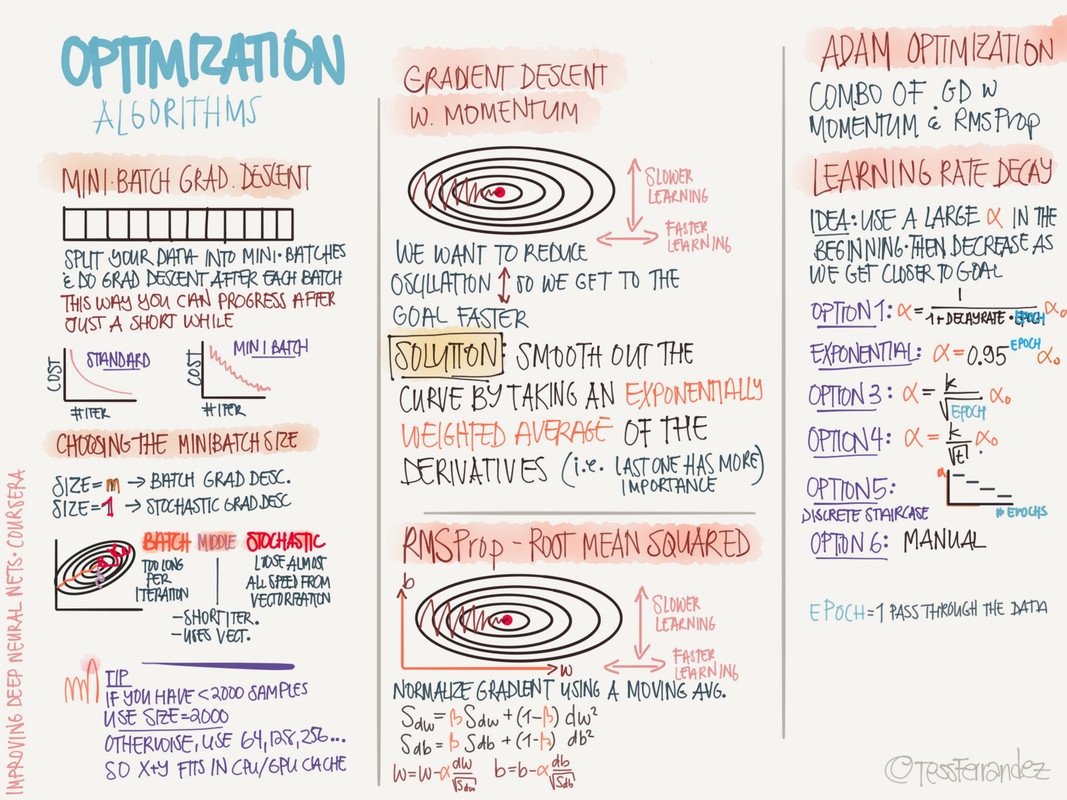 OPTIMIZATION
ALGORITHMS
MINI-BATCH GRAD. DESCENT
SPLIT YOUR DATA INTO MINI-BATCHES
& DO GRAD DESCENT AFTER EACH BATCH
THIS WAY YOU CAN PROGRESS AFTER
JUST A SHORT WHILE
COST
STANDARD
# ITER
COST
MINI BATCH
# ITER
CHOOSING THE MINIBATCH SIZE
SIZE=m → BATCH GRAD DESC.
SIZE=1 → STOCHASTIC GRAD.DESC
BATCH MIDDLE STOCHASTIC
TOO LONG
PER
ITERATION
LOOSE ALMOST
ALL SPEED FROM
VECTORIZATION
-SHORT ITER.
-USES VECT.
TIP
IF YOU HAVE <2000 SAMPLES
USE SIZE=2000
OTHERWISE, USE 64,128,256...
SO X+Y FITS IN CPU/GPU CACHE
IMPROVING DEEP NEURAL NETS · COURSERA
GRADIENT DESCENT
W. MOMENTUM
SLOWER
LEARNING
FASTER
LEARNING
WE WANT TO REDUCE
OSCILLATION ↕ SO WE GET TO THE
GOAL FASTER
SOLUTION: SMOOTH OUT THE
CURVE BY TAKING AN EXPONENTIALLY
WEIGHTED AVERAGE OF THE
DERIVATIVES (i.e. LAST ONE HAS MORE)
IMPORTANCE
RMSProp - ROOT MEAN SQUARED
b
w
SLOWER
LEARNING
FASTER
LEARNING
NORMALIZE GRADIENT USING A MOVING AVG.
Sdw = β Sdw + (1-β) dw²
Sdb = β Sdb + (1-β) db²
w = w - α dw/√Sdw b = b - α db/√Sdb
ADAM OPTIMIZATION
COMBO OF GD W
MOMENTUM & RMSProp
LEARNING RATE DECAY
IDEA: USE A LARGE α IN THE
BEGINNING. THEN DECREASE AS
WE GET CLOSER TO GOAL
OPTION 1: α = 1/(1+DECAYRATE · EPOCH) α₀
EXPONENTIAL: α = 0.95^EPOCH α₀
OPTION 3: α = k/√EPOCH α₀
OPTION 4: α = k/√t α₀.
OPTION 5:
DISCRETE STAIRCASE
α
# EPOCHS
OPTION 6: MANUAL
EPOCH=1 PASS THROUGH THE DATA
©TessFerrandez